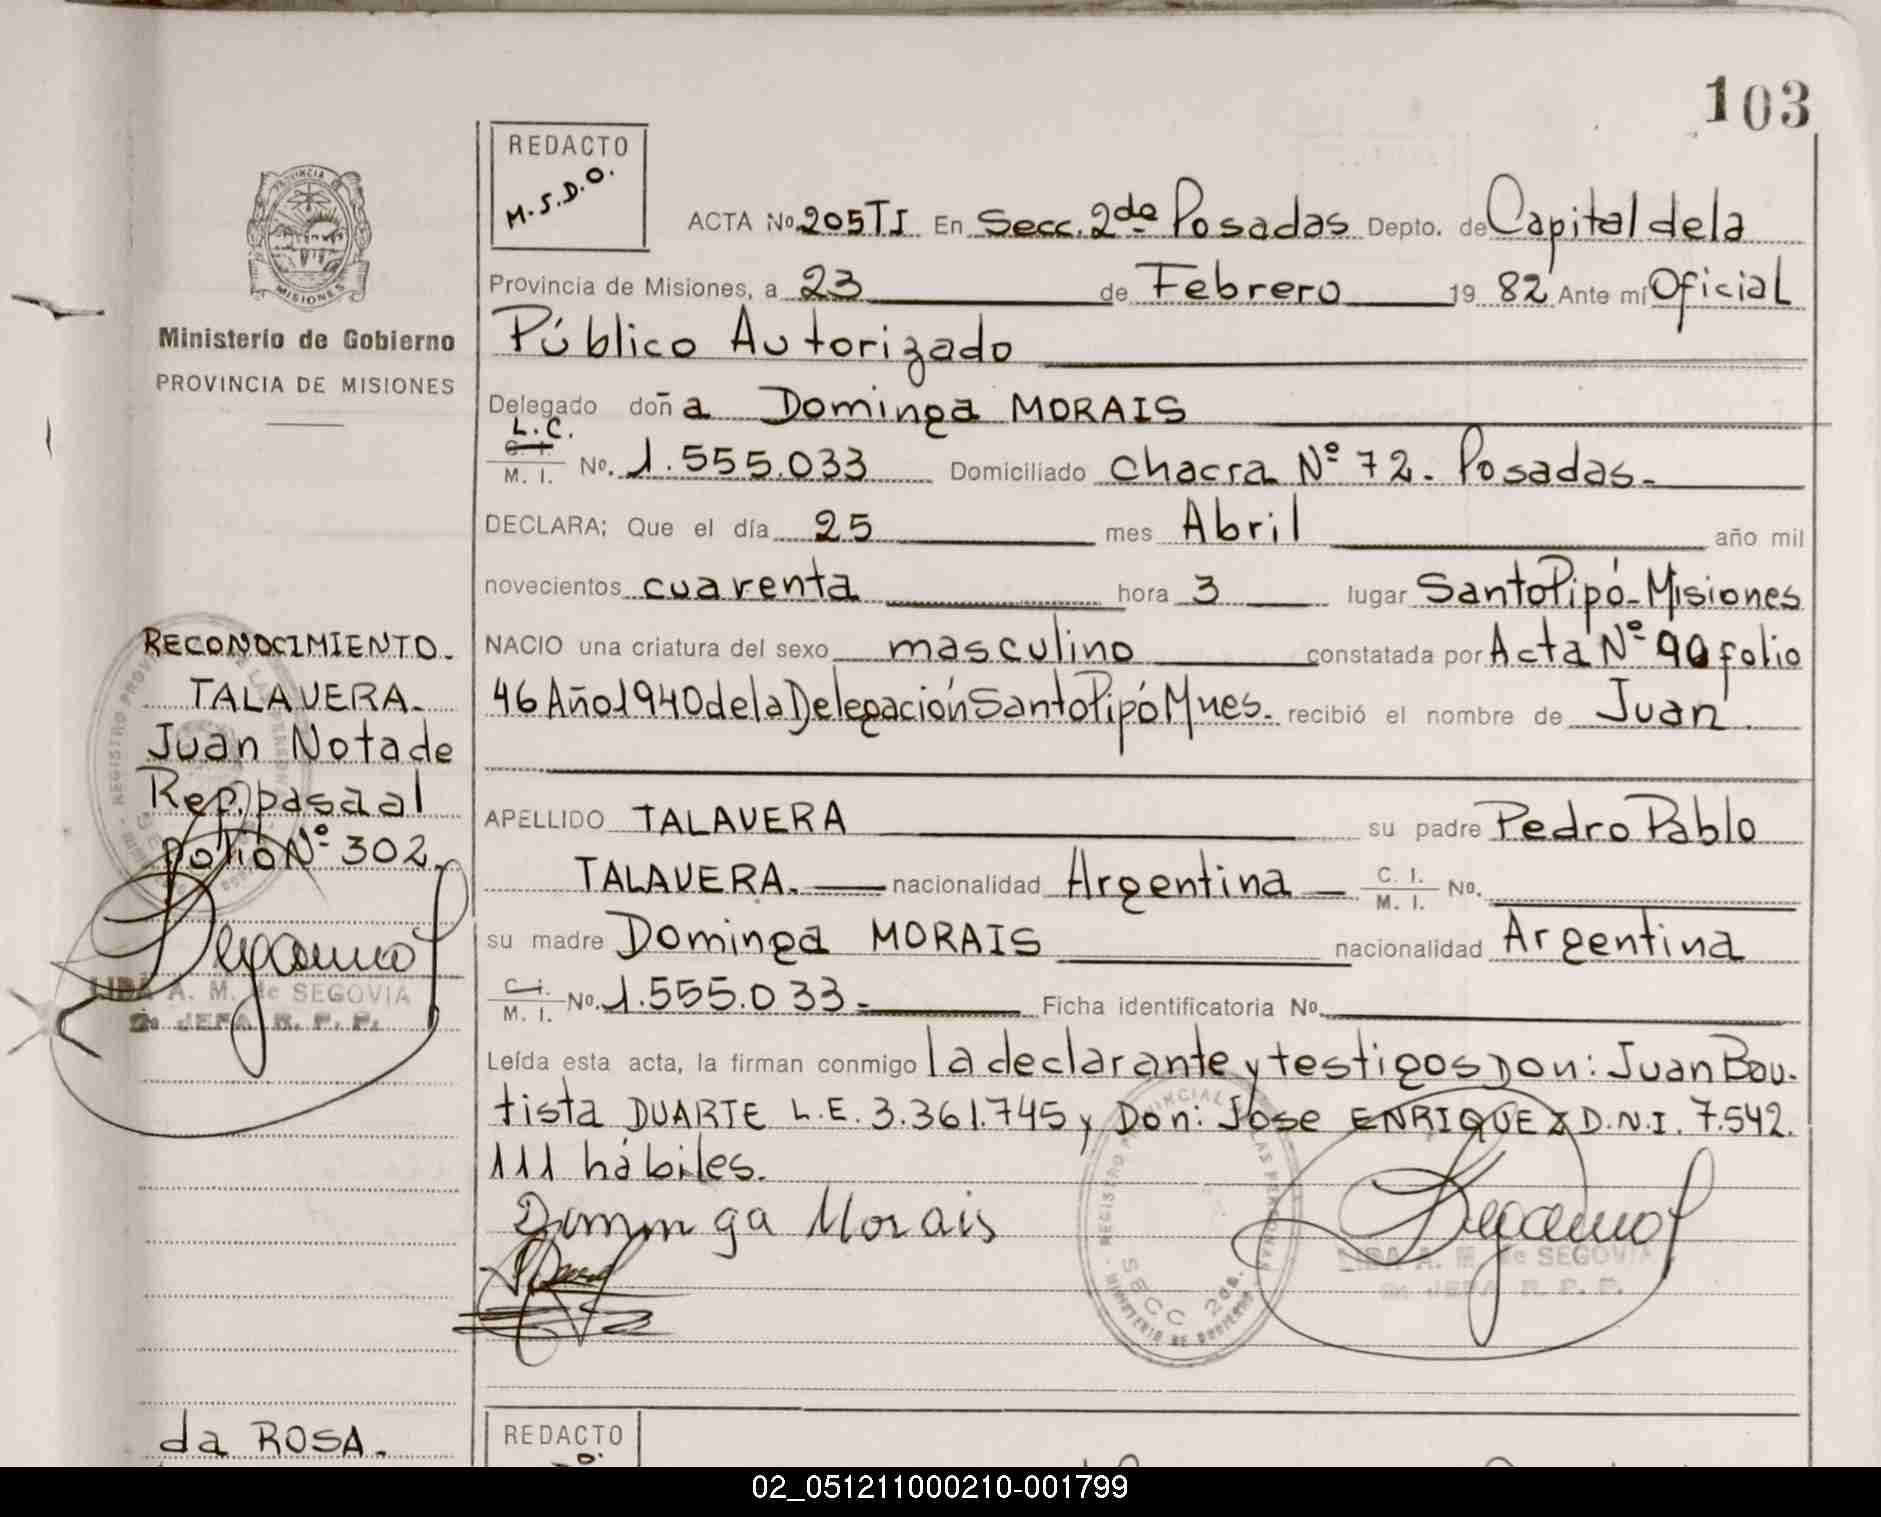 103
REDACTO
M.S.D.O.
ACTA No. 205 TI En Secc. 2da Posadas Depto. de Capital de la
Provincia de Misiones, a 23 de Febrero 19 82 Ante mi Oficial
Público Autorizado
Delegado doña Dominga MORAIS
L.C.
C. I.
M. I. No. 1.555.033 Domiciliado chacra Nº 72. Posadas.
DECLARA; Que el día 25 mes Abril año mil
novecientos cuarenta hora 3 lugar Santo Pipó-Misiones
NACIO una criatura del sexo masculino constatada por Acta Nº 90 folio
46 Año 1940 de la Delegación Santo Pipó Mnes. recibió el nombre de Juan.
APELLIDO TALAVERA su padre Pedro Pablo
TALAVERA. nacionalidad Argentina C. I. M. I. No.
su madre Dominga MORAIS nacionalidad Argentina
C. I. M. I. No. 1.555.033.- Ficha identificatoria No.
Leída esta acta, la firman conmigo la declarante y testigos Don: Juan Bau-
tista DUARTE L.E. 3.361.745 y Don: Jose ENRIQUEZ D.N.I. 7.542.
111 hábiles.
Dominga Morais
REGISTRO PROVINCIAL DE LAS PERSONAS
SECC 2da.
MINISTERIO DE GOBIERNO
LIBA A. M. de SEGOVIA
2a JEFA R. P. P.
PROVINCIA
MISIONES
Ministerio de Gobierno
PROVINCIA DE MISIONES
RECONOCIMIENTO.
TALAVERA.
Juan Nota de
Ref. pasa al
folio Nº 302.
LIBA A. M. de SEGOVIA
2a JEFA R. P. P.
da ROSA.
REDACTO
02_051211000210-001799